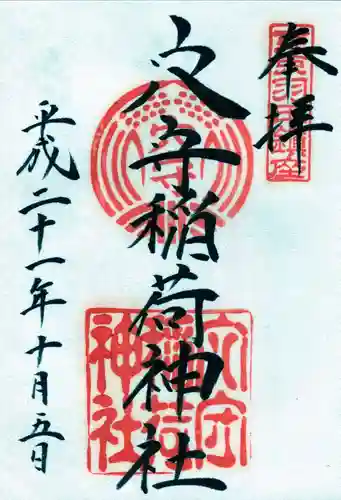 奉拝
穴守稲荷神社
平成二十一年十月五日
穴守
稲荷
神社